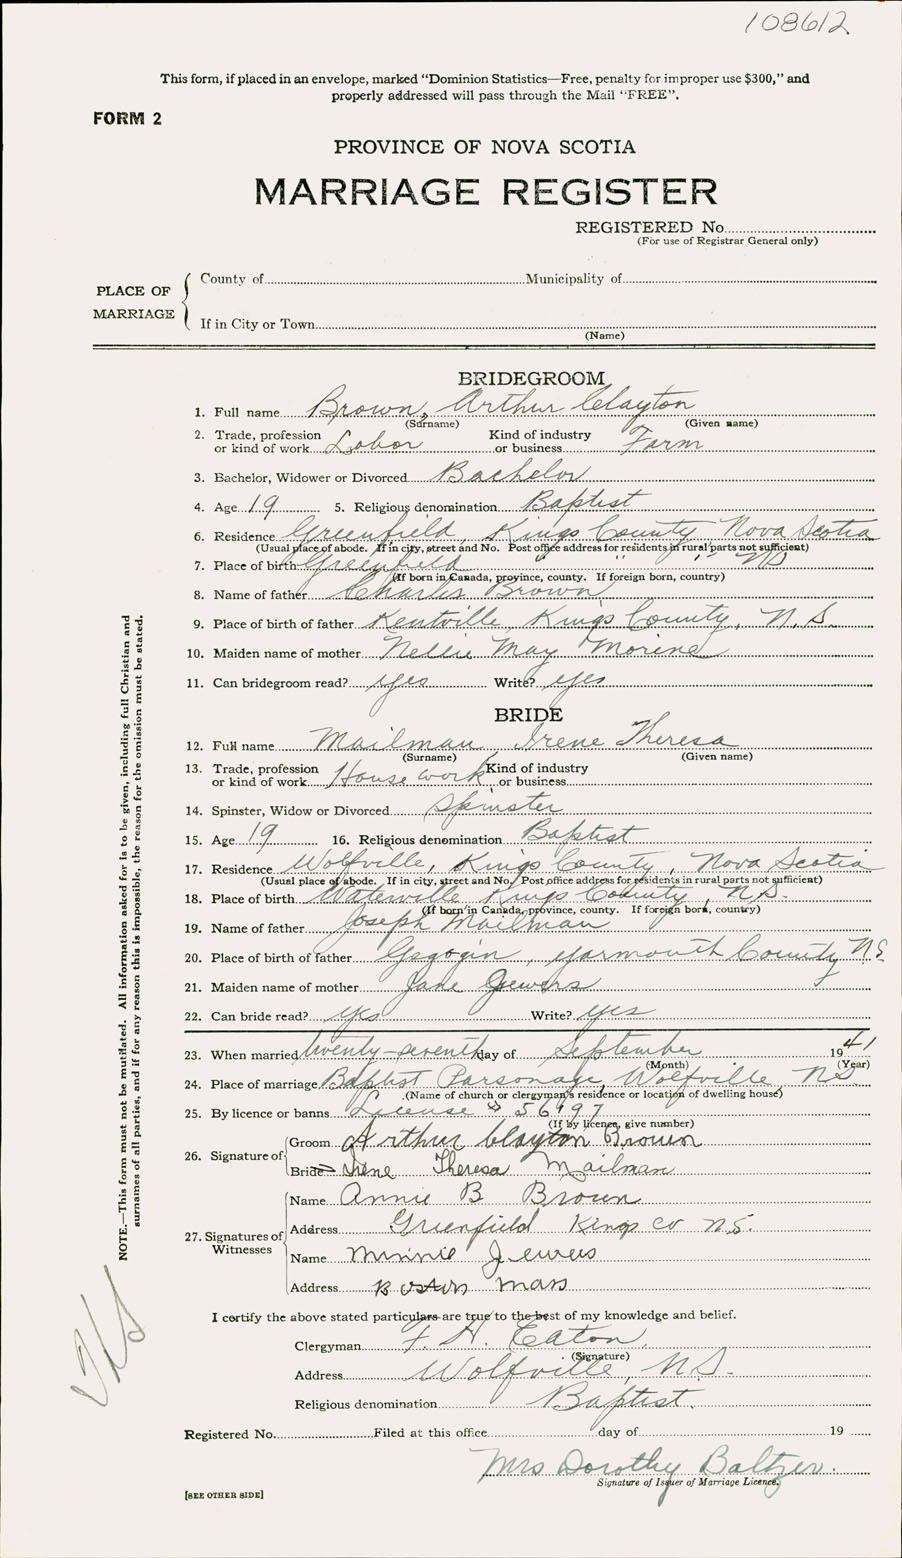 108612
This form, if placed in an envelope, marked “Dominion Statistics—Free, penalty for improper use $300,” and
properly addressed will pass through the Mail “FREE”.
FORM 2
PROVINCE OF NOVA SCOTIA
MARRIAGE REGISTER
REGISTERED No
(For use of Registrar General only)
PLACE OF MARRIAGE
County of Municipality of
If in City or Town
(Name)
BRIDEGROOM
1. Full name Brown, Arthur Clayton
(Surname) (Given name)
2. Trade, profession or kind of work Labor Kind of industry or business Farm
3. Bachelor, Widower or Divorced Bachelor
4. Age 19 5. Religious denomination Baptist
6. Residence Greenfield, Kings County Nova Scotia
(Usual place of abode. If in city, street and No. Post office address for residents in rural parts not sufficient)
7. Place of birth Greenfield " " NS
(If born in Canada, province, county. If foreign born, country)
8. Name of father Charles Brown
9. Place of birth of father Kentville, Kings County, N.S.
10. Maiden name of mother Nellie May Morine
11. Can bridegroom read? yes Write? yes
BRIDE
12. Full name Mailman, Irene Theresa
(Surname) (Given name)
13. Trade, profession or kind of work House work Kind of industry or business
14. Spinster, Widow or Divorced Spinster
15. Age 19 16. Religious denomination Baptist
17. Residence Wolfville, Kings County, Nova Scotia
(Usual place of abode. If in city, street and No. Post office address for residents in rural parts not sufficient)
18. Place of birth Waterville Kings County, N.S.
(If born in Canada, province, county. If foreign born, country)
19. Name of father Joseph Mailman
20. Place of birth of father Yarmouth County N.S
21. Maiden name of mother Jane Jewers
22. Can bride read? yes Write? yes
23. When married twenty-seventh day of September 1941
(Month) (Year)
24. Place of marriage Baptist Parsonage, Wolfville, NS
(Name of church or clergyman's residence or location of dwelling house)
25. By licence or banns License 56497
(If by licence, give number)
26. Signature of
Groom Arthur Clayton Brown
Bride Irene Theresa Mailman
27. Signatures of Witnesses
Name Annie B Brown
Address Greenfield Kings Co N.S.
Name Minnie Jewers
Address Boston Mass
I certify the above stated particulars are true to the best of my knowledge and belief.
Clergyman F. H. Eaton.
(Signature)
Address Wolfville, N.S.
Religious denomination Baptist.
Registered No. Filed at this office day of 19
Mrs Dorothy Baltzer.
Signature of Issuer of Marriage Licence.
[SEE OTHER SIDE]
NOTE.—This form must not be mutilated. All information asked for is to be given, including full Christian and
surnames of all parties, and if for any reason this is impossible, the reason for the omission must be stated.